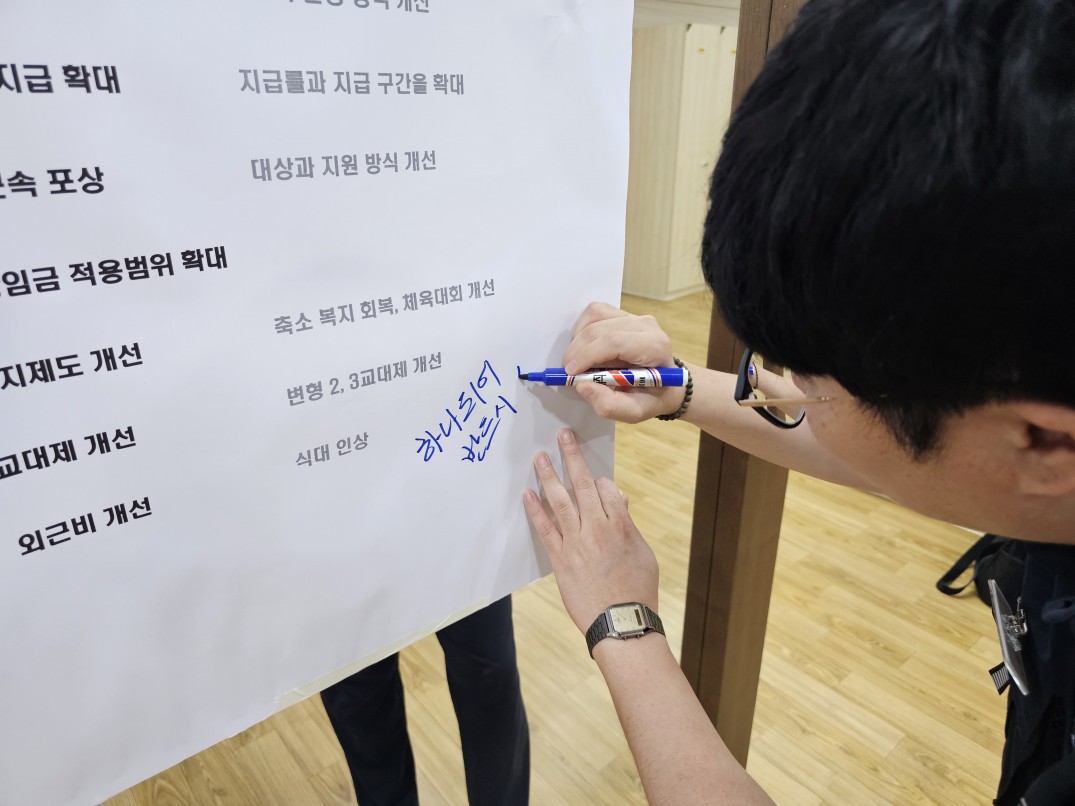 방식 개선
지급 확대
지급률과 지급 구간을 확대
포상
대상과 지원 방식 개선
임금 적용범위 확대
축소 복지 회복, 체육대회 개선
지제도 개선
변형 2, 3교대제 개선
교대제 개선
식대 인상
외근비 개선
하나되어
반드시